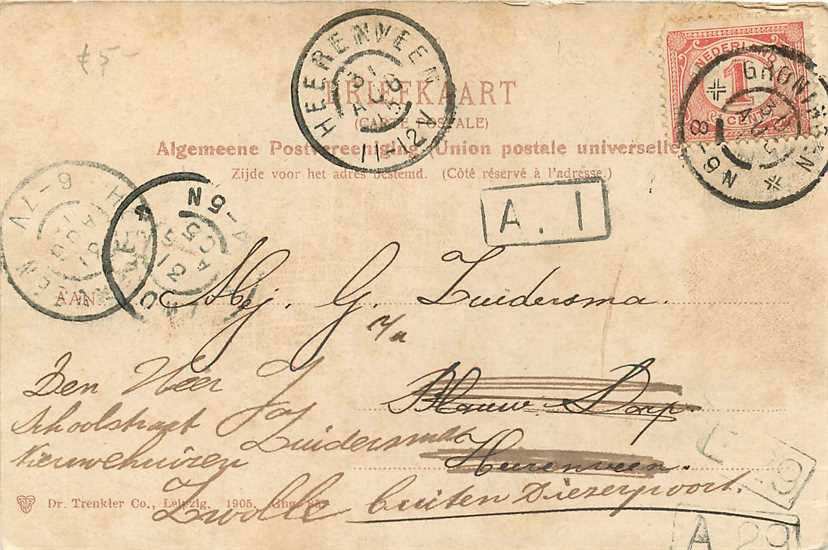 £5-
HEERENVEEN
31 AUG
11-12V
BRIEFKAART
(CARTE POSTALE)
Algemeene Postvereeniging. Union postale universelle
Zijde voor het adres bestemd. (Côté réservé à l'adresse.)
NEDERLAND
1
CENT
GRONINGEN
30 AUG
8-9N
A. 1
6-7V
4-5N
AAN
Mej. G. Zuidersma
p/a
Den Heer J. Zuidersma
Blauw Dorp
Schoolstraat
Heerenveen.
Nieuwehuizen
Zwolle buiten Diezerpoort.
Dr. Trenkler Co., Leipzig. 1905.
A 29